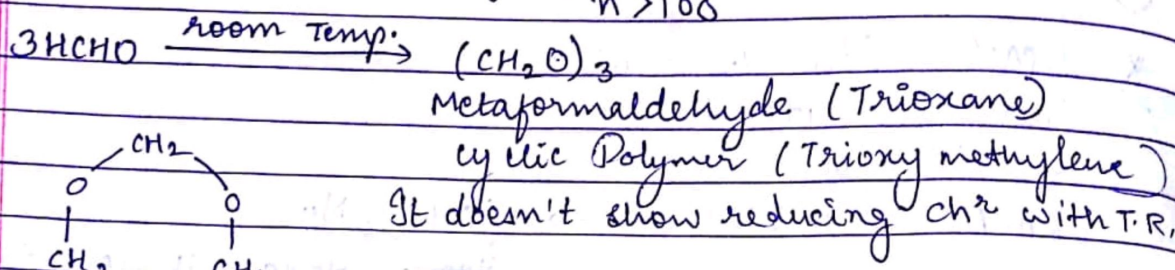 n >100
3HCHO room Temp. → (CH2O)3
Metaformaldehyde (Trioxane)
cyclic Polymer (Trioxy methylene)
It doesn't show reducing chr with T.R.
CH2
O O
CH2 CH